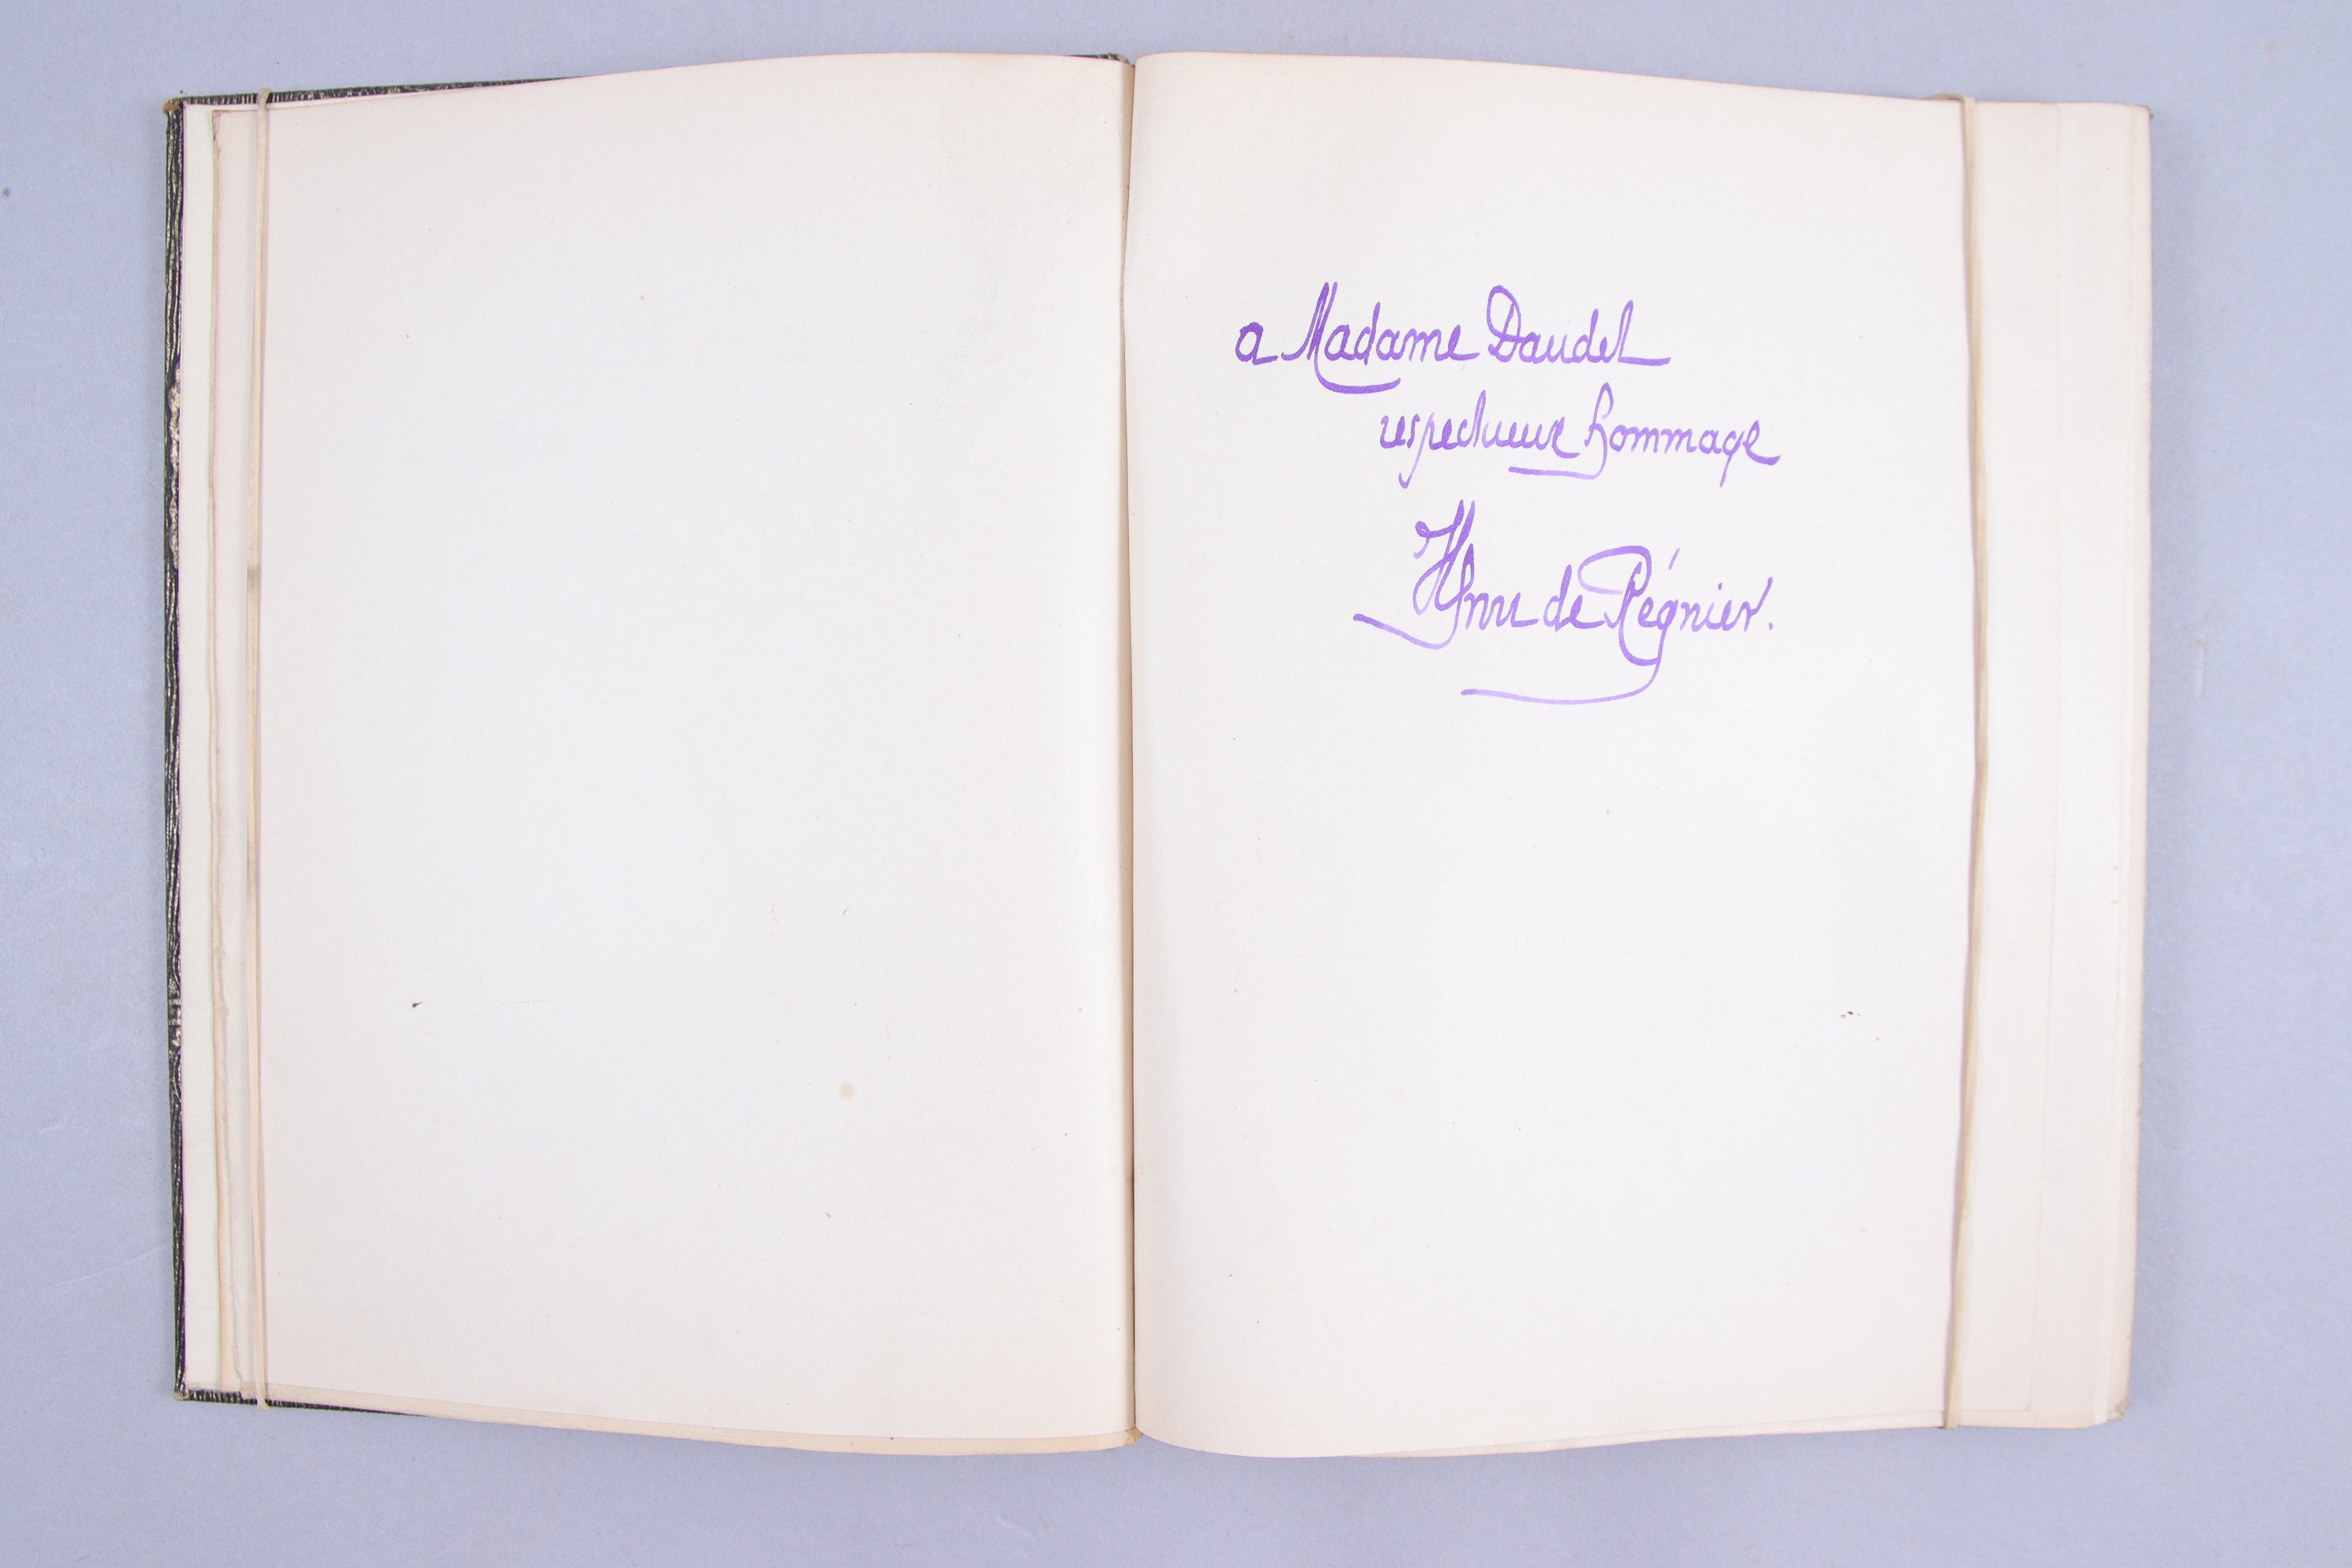 a Madame Daudet
respectueux hommage
Henri de Régnier.